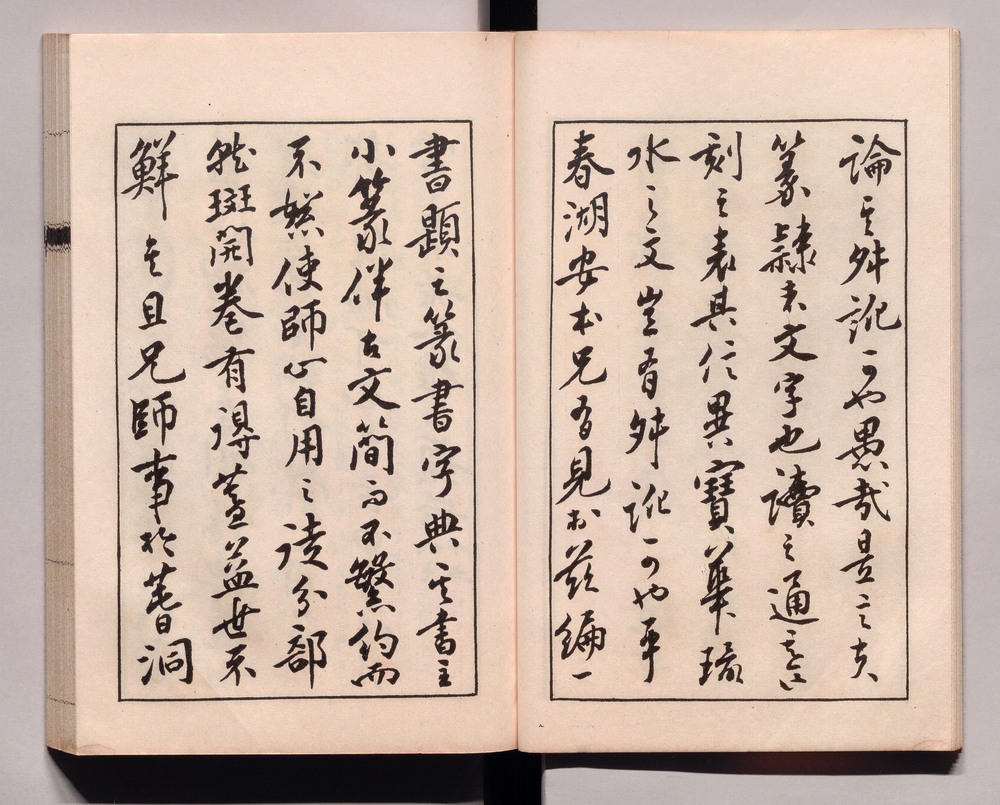 論其舛訛可也愚哉是言夫
篆隸末文字也讀之通其
刻之表其信異寶華璓
水之文豈有舛訛可也乎
春湖安本兄有見於茲編一
書題之篆書字典其書主
小篆伴古文簡而不繁約而
不懋使師心自用之徒分部
就斑開卷有得蓋益世不
鮮矣且兄師事於菩洞